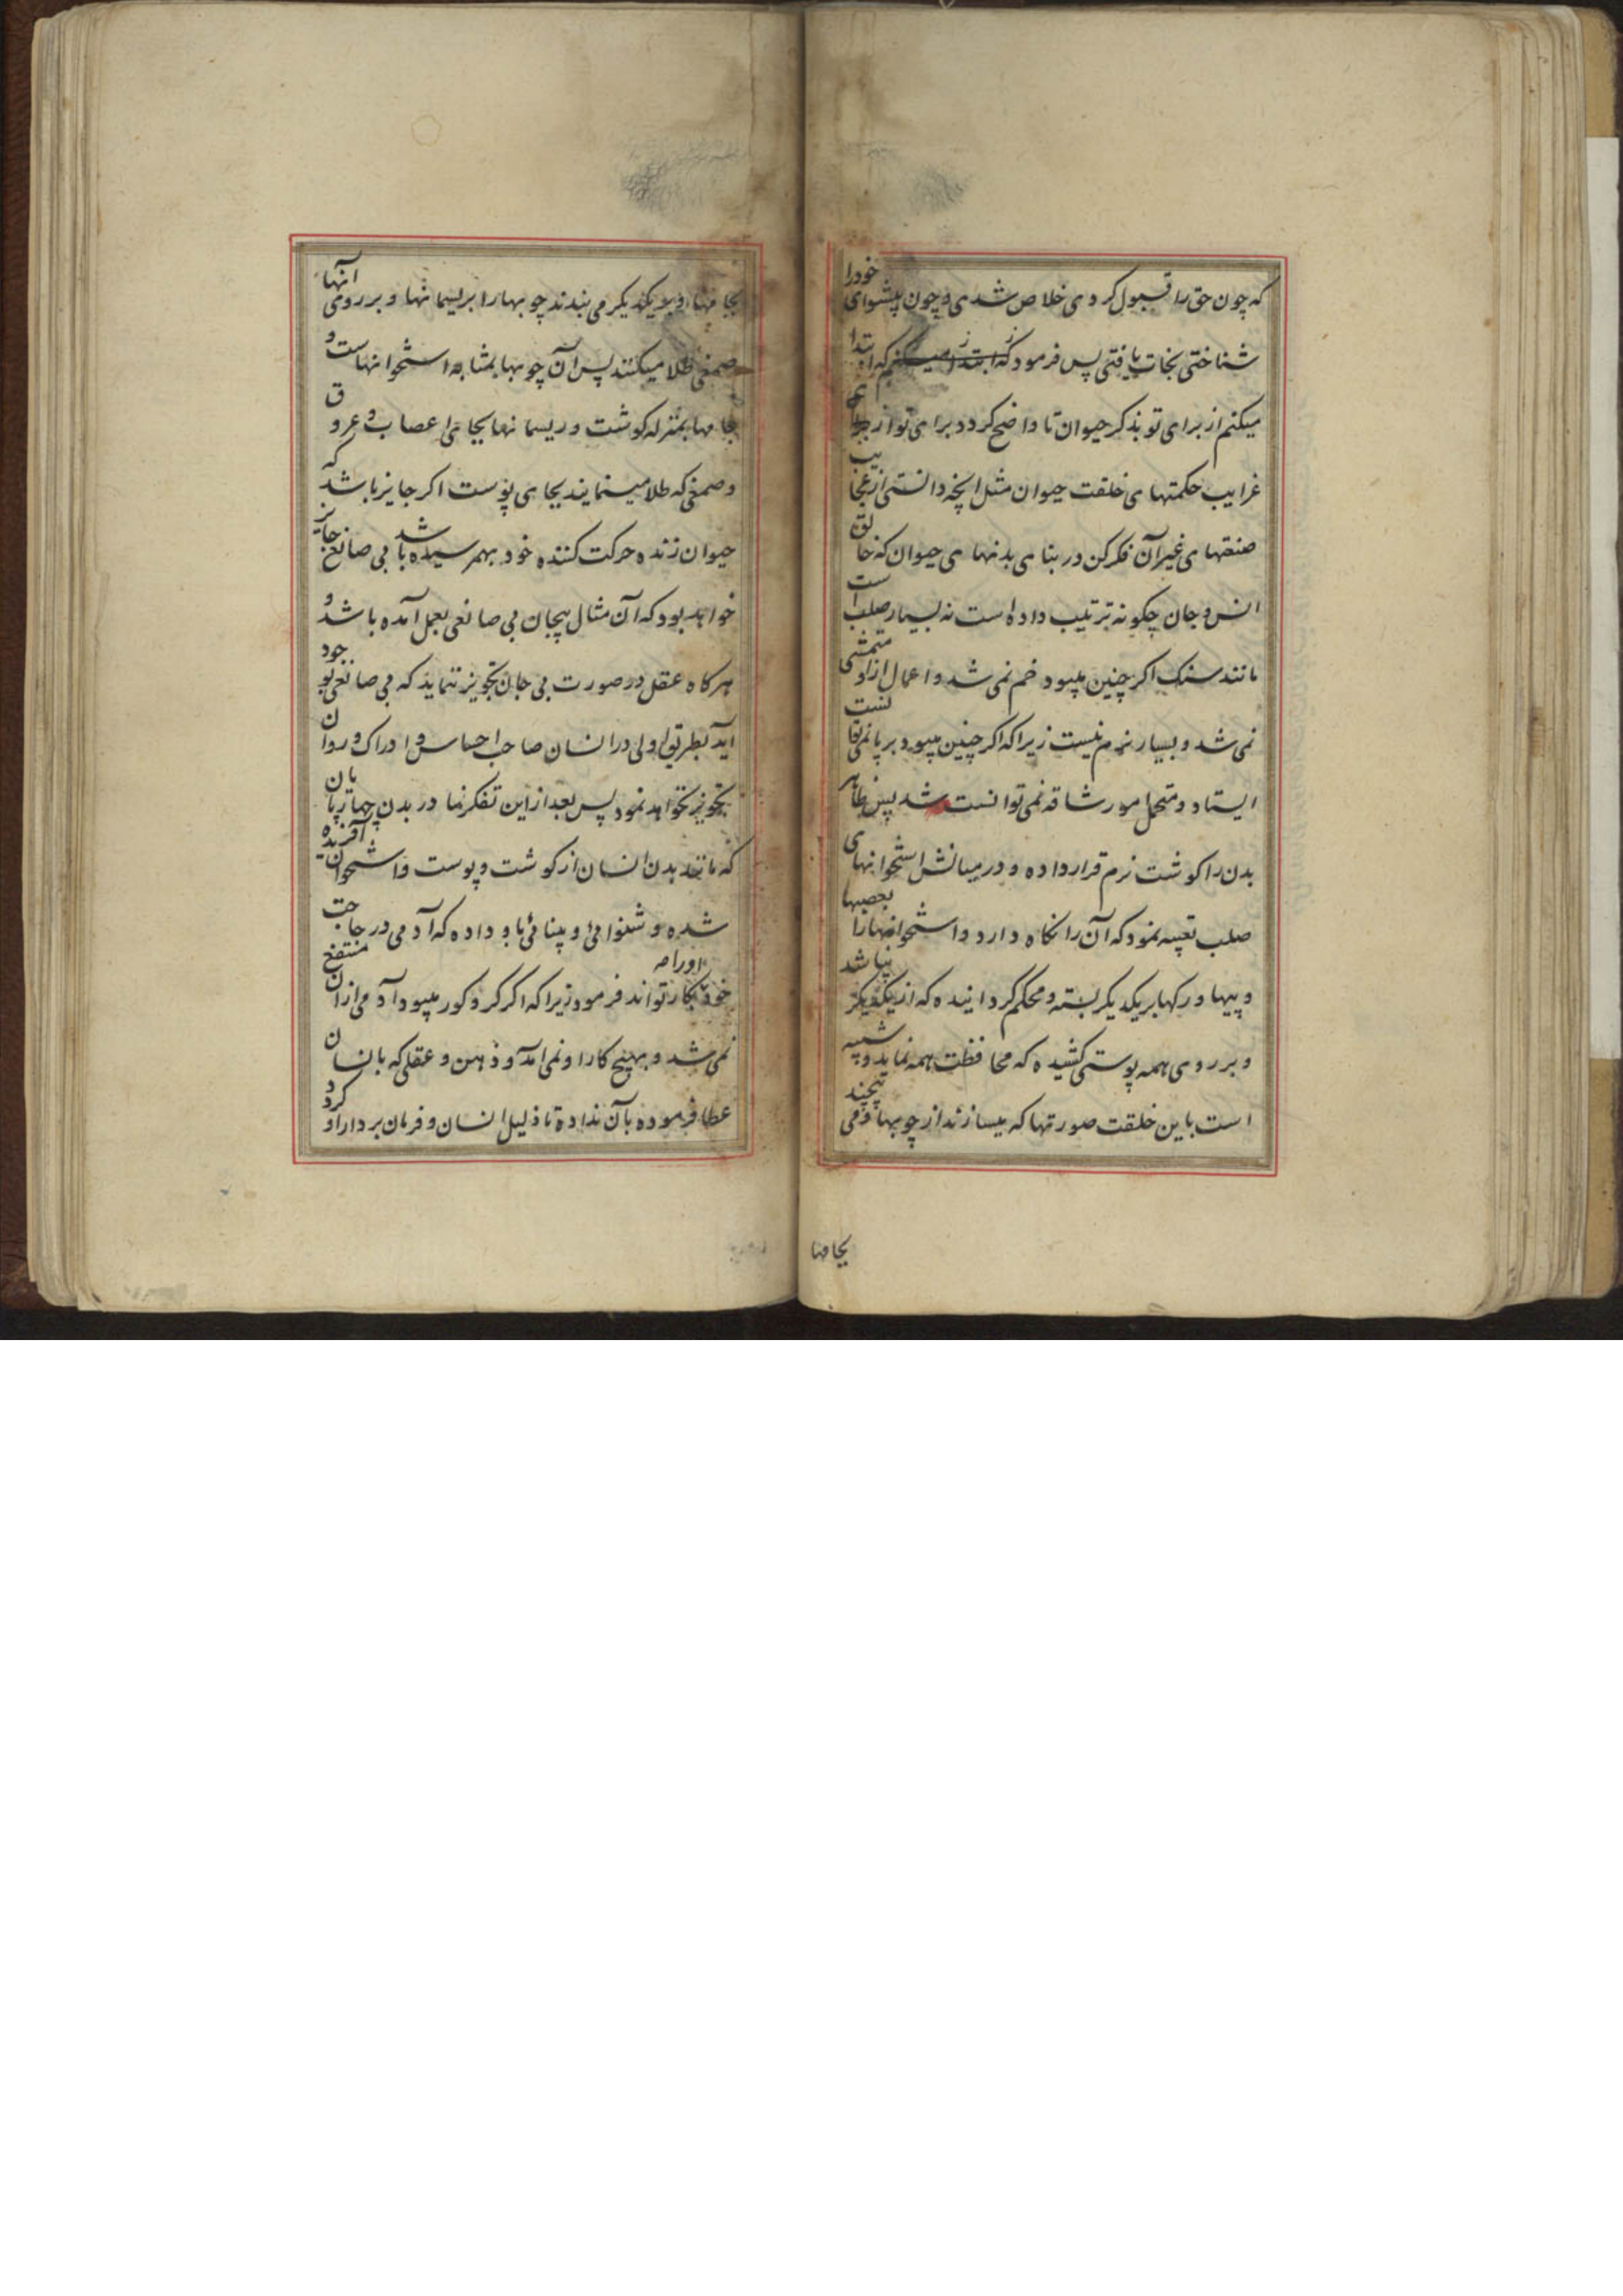 که چون حق را قبول کردی خلاص شدی و چون پیشوای خودرا
شناختی نجات یافتی پس فرمود که ابتدا میکنم که ابتدا
میکنم از برای تو بذکر حیوان تا واضح کردد برای تو از
غرایب حکمتهای خلقت حیوان مثل انچه دانستی از عجایب
صنعتهای غیر آن فکر کن در بنای بدنهای حیوان که خالق
انس و جان چکونه ترتیب داده است نه بسیار صلب است
مانند سنک اکر چنین میبود خم نمی شد و اعمال ازاو متمشی
نمی شد و بسیار نرم نیست زیرا که اکر چنین میبود برپا نمیتوانست
ایستاد و متحمل امور شاقه نمی توانست شد پس ظاهر
بدن را کوشت نرم قرار داده و در میانش استخوانهای
صلب تعبیه نمود که آن را نکاه دارد و استخوانهارا بعصبها
و پیها و رکها بریکدیکر بسته و محکم کردانیده که از یکدیکر نپاشد
و بر روی همه پوستی کشیده که محافظت همه نماید و شبیه
است باین خلقت صورتها که میسازند از چوبها و می پیچند
بجامها
بجامها و بریکدیکر می بندند چوبهارا بریسمانها و بر روی آنها
صمغی طلا میکنند پس آن چوبها بمثابه استخوانهاست و
جامها بمنزله کوشت و ریسمانها بجای اعصاب و عروق
و صمغی که طلا مینمایند بجای پوست اکر جایز باشد که
حیوان زنده حرکت کننده خود بهمرسیده باشد بی صانع جایز
خواهد بود که آن مثال بیجان بی صانعی بعمل آمده باشد و
هرکاه عقل در صورت بی جان تجویز ننماید که بی صانعی بوجود
اید بطریق اولی در انسان صاحب احساس و ادراک و روان
تجویز نخواهد نمود پس بعد از این تفکر نما در بدن چهارپایان
که مانند بدن انسان از کوشت و پوست و استخوان آفریده
شده و شنوائی و بینائی باو داده که آدمی در حاجت
خود بکار تواند فرمود زیرا که اکر کر و کور میبود آدمی ازان منتفع
نمی شد و بهیچ کار او نمی آمد و ذهن و عقلی که بانسان
عطا فرموده بآن نداده تا ذلیل انسان و فرمان بردار او کردد